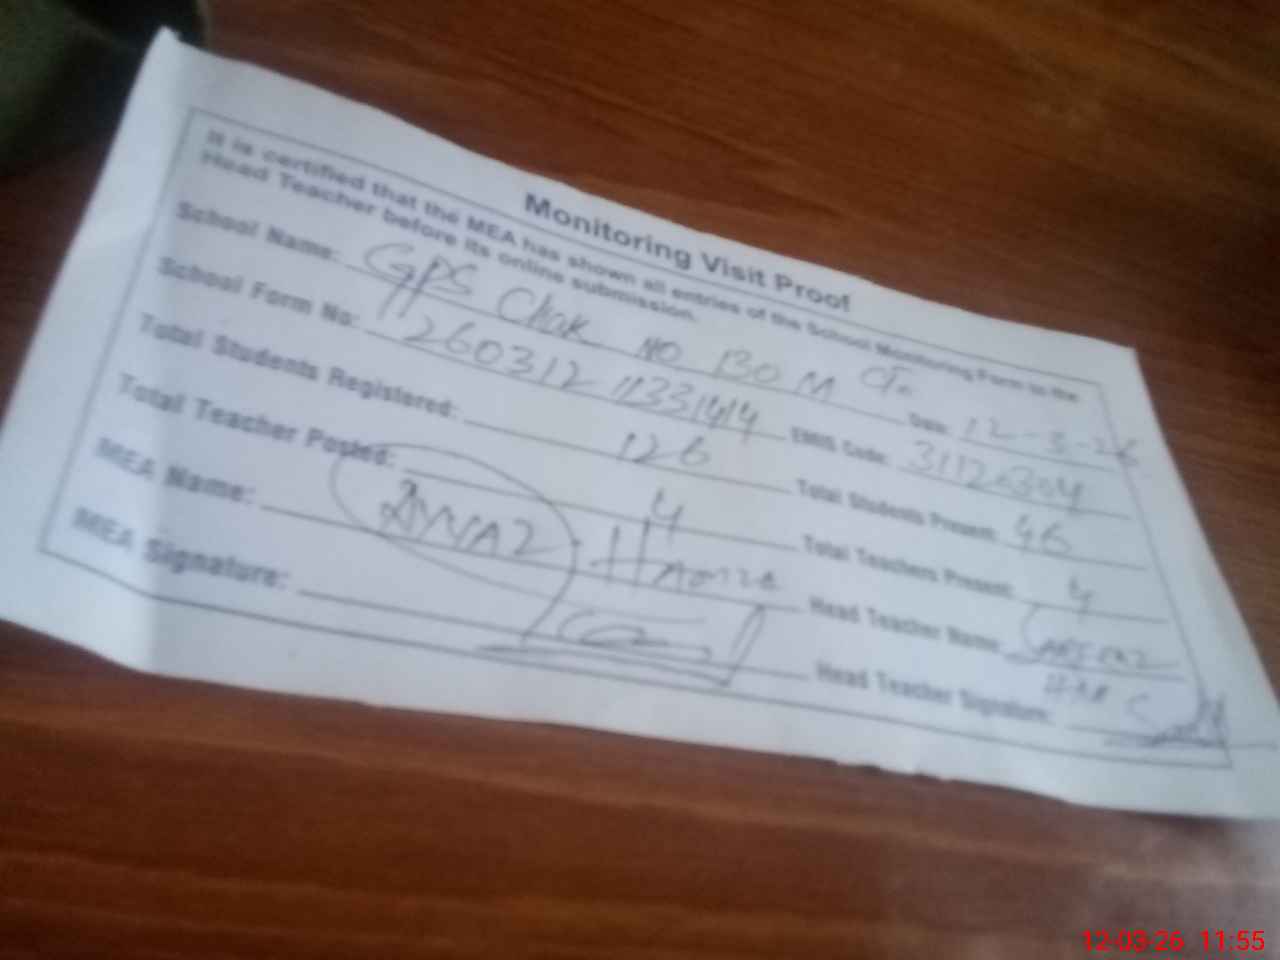 Monitoring Visit Proof
It is certified that the MEA has shown all entries of the School Monitoring Form to the
Head Teacher before its online submission.
School Name: GPS Chak NO 130 M Date: 12-3-26
School Form No: 260312 11331414 EMIS Code: 31120304
Total Students Registered: 126 Total Students Present: 46
Total Teacher Posted: 4 Total Teachers Present: 4
MEA Name: Head Teacher Name:
MEA Signature: Head Teacher Signature:
12-03-26 11:55